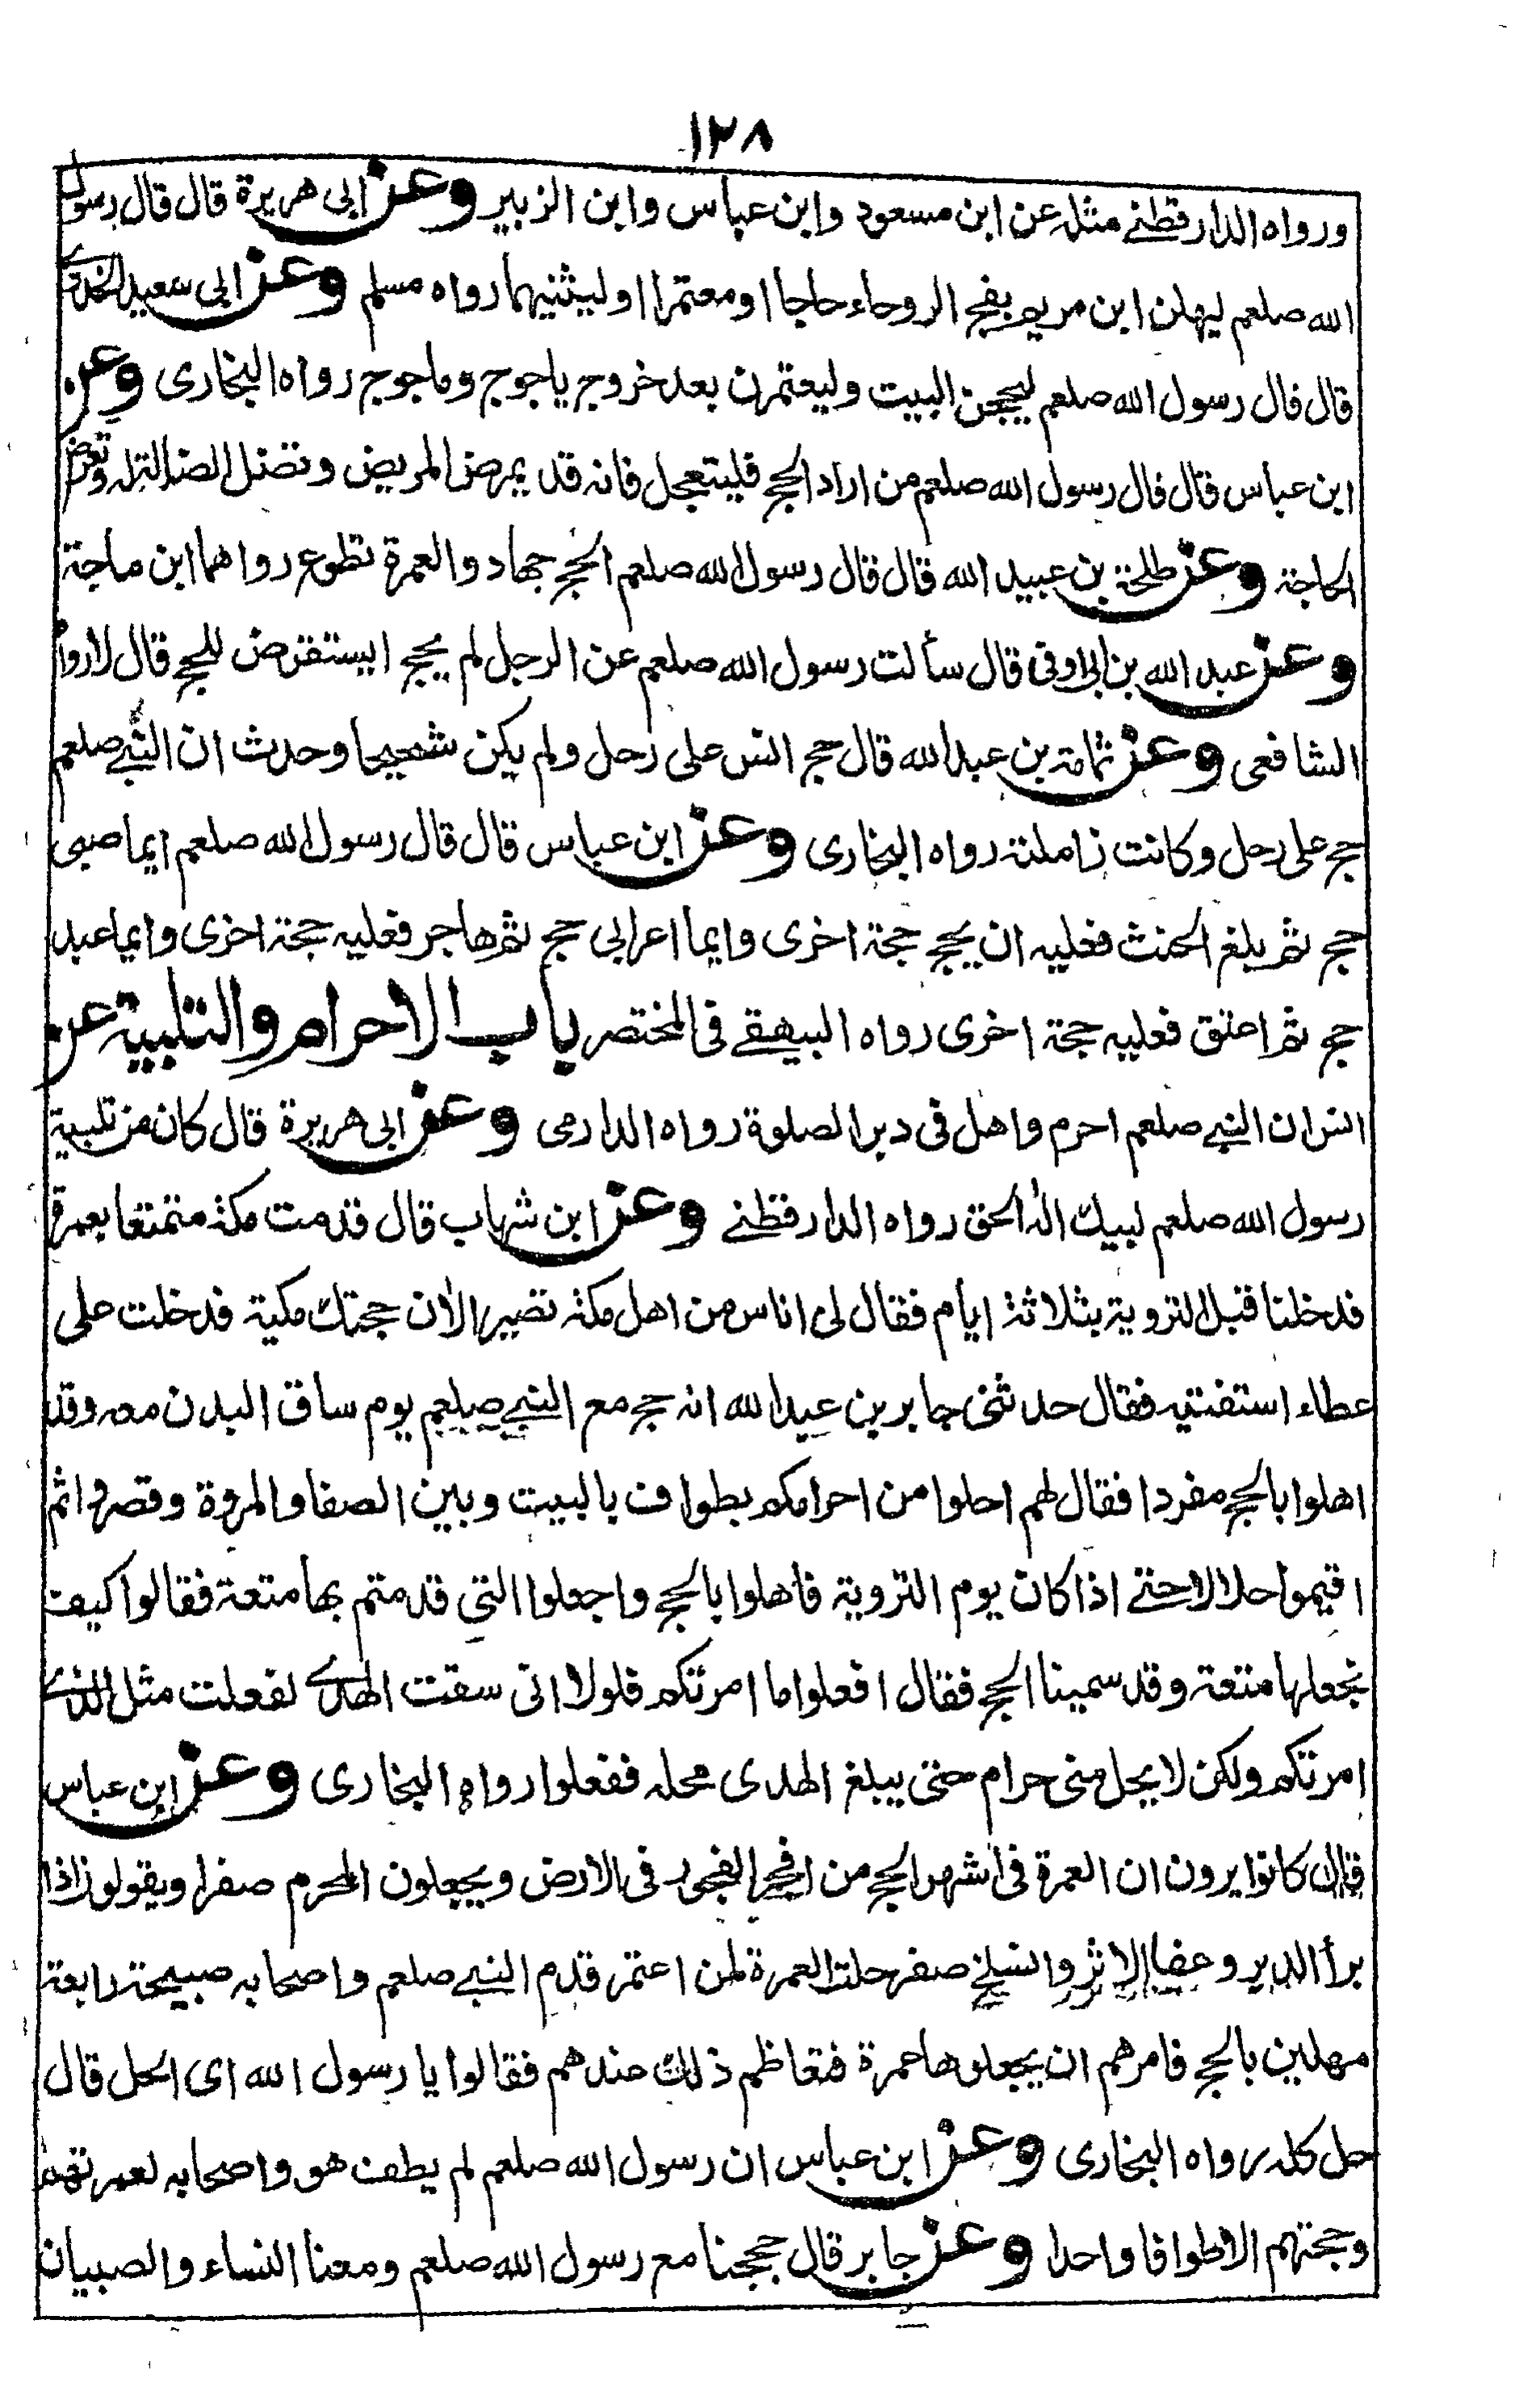 ١٢٨
ورواه الدارقطنے مثله عن ابن مسعود وابن عباس وابن الزبير وعن ابی هريرة قال قال رسول
الله صلعم ليهلن ابن مريم بفج الروحاء حاجا او معتمرا او ليثنيهما رواه مسلم وعن ابی سعيد الخدرے
قال قال رسول الله صلعم ليحجن البيت وليعتمرن بعد خروج ياجوج وماجوج رواه البخاری وعن
ابن عباس قال قال رسول الله صلعم من اراد الحج فليتعجل فانه قد يمرض المريض وتضل الضالة وتعرض
الحاجة وعن طلحة بن عبيد الله قال قال رسول الله صلعم الحج جهاد والعمرة تطوع رواهما ابن ماجة
وعن عبد الله بن ابی اوفی قال سألت رسول الله صلعم عن الرجل لم يحج ايستقرض للحج قال لا رواه
الشافعی وعن ثمامة بن عبد الله قال حج انس علی رحل ولم يكن شحيحا وحدث ان النبے صلعم
حج علی رحل وكانت زاملته رواه البخاری وعن ابن عباس قال قال رسول الله صلعم ايما صبی
حج ثم بلغ الحنث فعليه ان يحج حجة اخری وايما اعرابی حج ثم هاجر فعليه حجة اخری وايما عبد
حج ثم اعتق فعليه حجة اخری رواه البيهقے فی المختصر باب الاحرام والتلبية عن
انس ان النبے صلعم احرم واهل فی دبر الصلوة رواه الدارمی وعن ابی هريرة قال كان من تلبية
رسول الله صلعم لبيك اله الحق رواه الدارقطنے وعن ابن شهاب قال قدمت مكة متمتعا بعمرة
فدخلنا قبل التروية بثلاثة ايام فقال لی اناس من اهل مكة تصير الان حجتك مكية فدخلت علی
عطاء استفتيه فقال حدثنی جابر بن عبد الله انه حج مع النبے صلعم يوم ساق البدن معه وقد
اهلوا بالحج مفردا فقال لهم احلوا من احرامكم بطواف بالبيت وبين الصفا والمروة وقصروا ثم
اقيموا حلالا حتے اذا كان يوم التروية فاهلوا بالحج واجعلوا التی قدمتم بها متعة فقالوا كيف
نجعلها متعة وقد سمينا الحج فقال افعلوا ما امرتكم فلولا انی سقت الهدے لفعلت مثل الذے
امرتكم ولكن لا يحل منی حرام حتی يبلغ الهدی محله ففعلوا رواه البخاری وعن ابن عباس
قال كانوا يرون ان العمرة فی اشهر الحج من افجر الفجور فی الارض ويجعلون المحرم صفرا ويقولون اذا
برأ الدبر وعفا الاثر وانسلخ صفر حلت العمرة لمن اعتمر قدم النبے صلعم واصحابه صبيحة رابعة
مهلين بالحج فامرهم ان يجعلوها عمرة فتعاظم ذلك عندهم فقالوا يا رسول الله ای الحل قال
حل كله رواه البخاری وعن ابن عباس ان رسول الله صلعم لم يطف هو واصحابه لعمرتهم
وحجتهم الا طوافا واحدا وعن جابر قال حججنا مع رسول الله صلعم ومعنا النساء والصبيان